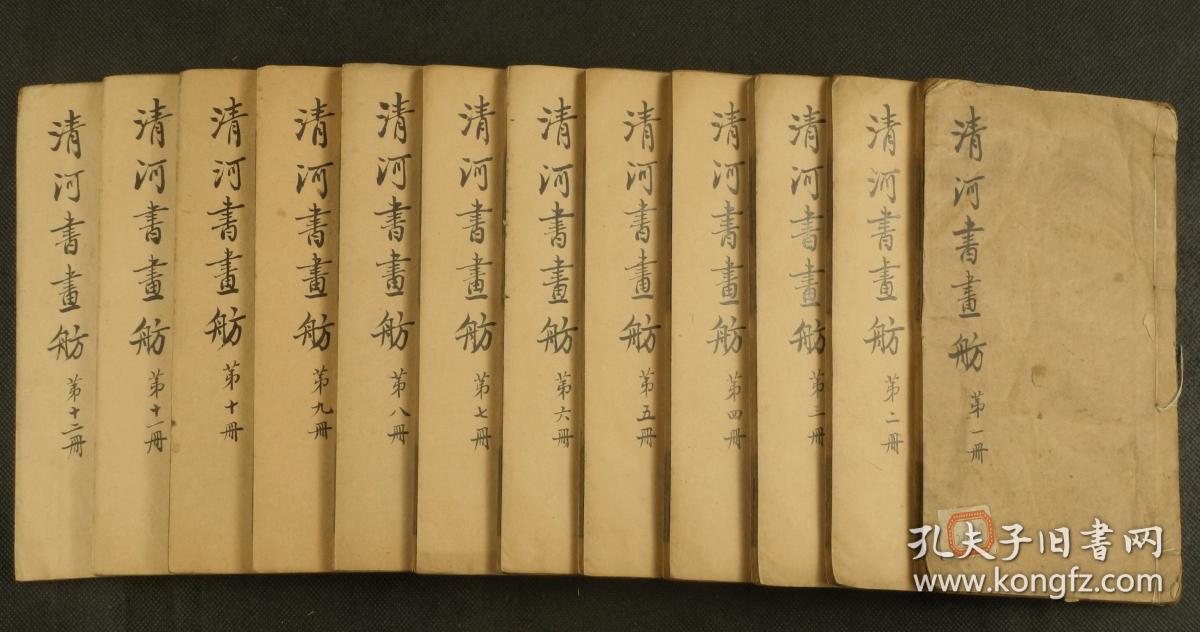 清河書畫舫 第一冊
清河書畫舫 第二冊
清河書畫舫 第三冊
清河書畫舫 第四冊
清河書畫舫 第五冊
清河書畫舫 第六冊
清河書畫舫 第七冊
清河書畫舫 第八冊
清河書畫舫 第九冊
清河書畫舫 第十冊
清河書畫舫 第十一冊
清河書畫舫 第十二冊
孔夫子旧书网
www.kongfz.com